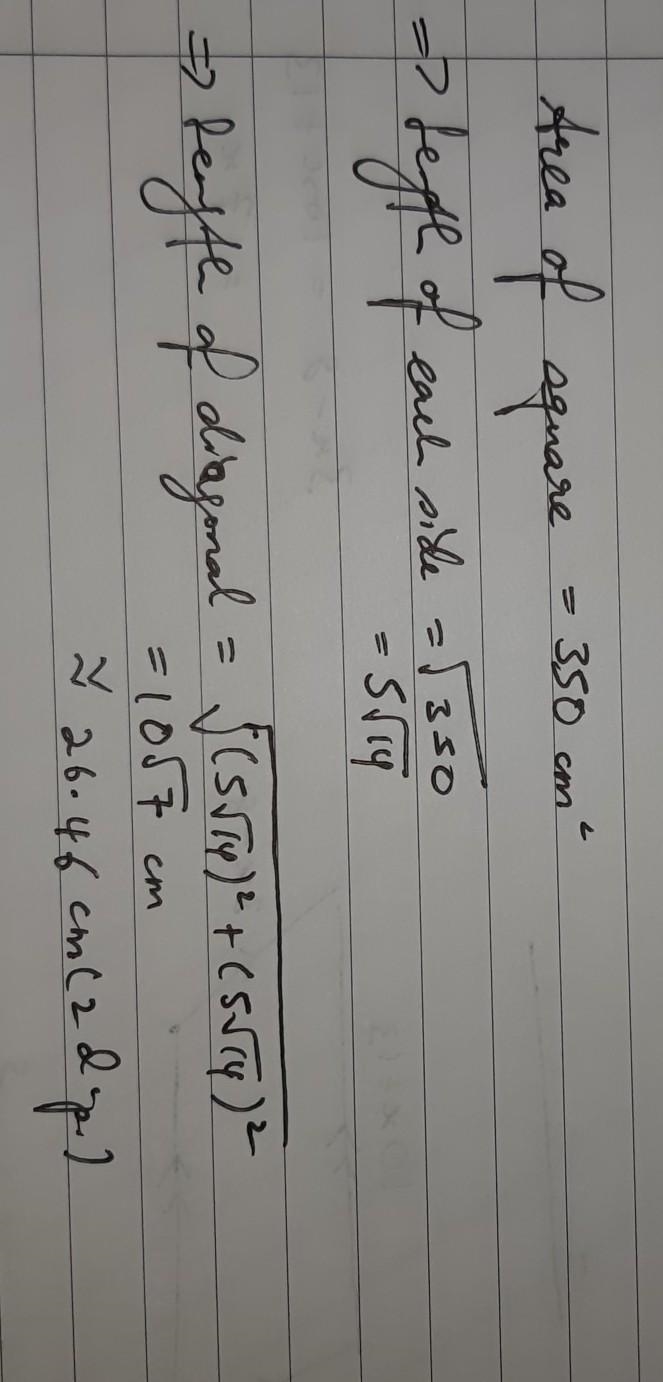 Area of square = 350 cm²
=> Length of each side = √350
= 5√14
=> Length of diagonal = √(5√14)² + (5√14)²
= 10√7 cm
≈ 26.46 cm (2 d.p.)